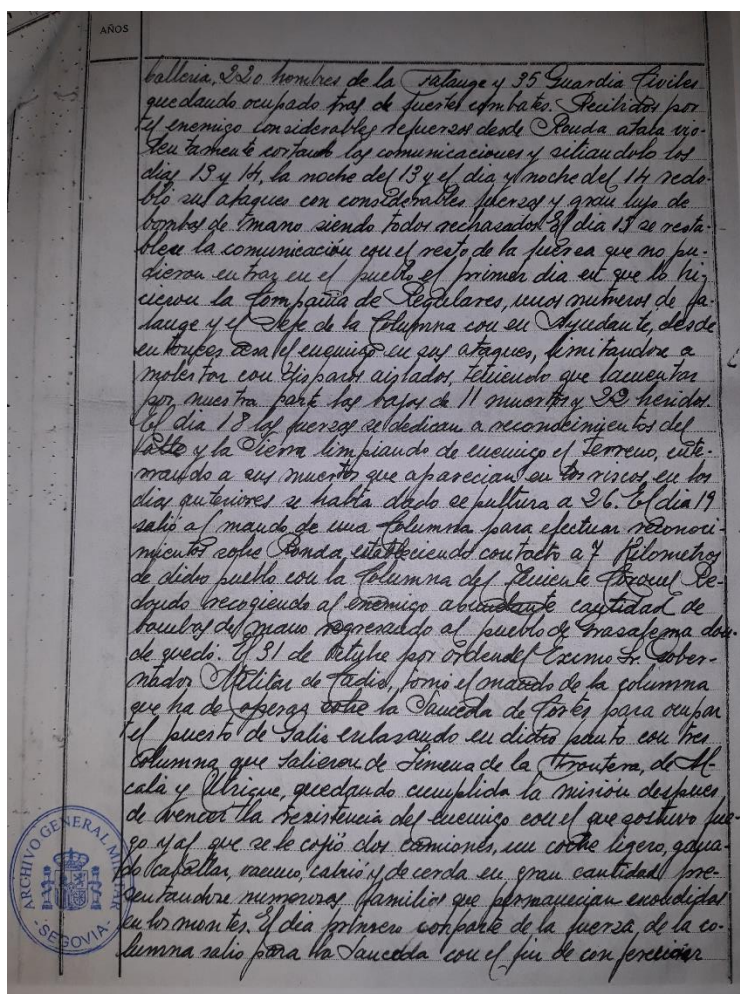 AÑOS
balleria, 220 hombres de la Falange y 35 Guardia Civiles
quedando ocupado tras de fuertes combates. Recibidos por
el enemigo considerables refuerzos desde Ronda ataca vio-
lentamente cortando las comunicaciones y sitiandolo los
dias 13 y 14, la noche del 13 y el dia y noche del 14 redo-
bló sus ataques con considerables fuerzas y gran lujo de
bombas de mano siendo todos rechazados. El dia 15 se resta-
blece la comunicación con el resto de la fuerza que no pu-
dieron entrar en el pueblo el primer dia en que lo hi-
cieron la Compañia de Regulares, unos numeros de fa-
lange y el Jefe de la Columna con su Ayudante, desde
entonces cesa el enemigo en sus ataques, limitandose a
molestar con disparos aislados, teniendo que lamentar
por nuestra parte las bajas de 11 muertos y 22 heridos.
El dia 18 las fuerzas se dedican a reconocimientos del
Valle y la Sierra limpiando de enemigo el terreno, ente-
rrando a sus muertos que aparecian en los riscos, en los
dias anteriores se habia dado sepultura a 26. El dia 19
salió al mando de una Columna para efectuar reconoci-
mientos sobre Ronda, estableciendo contacto a 7 Kilometros
de dicho pueblo con la Columna del Teniente Coronel Re-
dondo recogiendo al enemigo abundante cantidad de
bombas de mano regresando al pueblo de Grazalema don-
de quedó. El 31 de Octubre por orden del Excmo Sr. Gober-
nador Militar de Cadiz, tomó el mando de la columna
que ha de operar sobre la Sauceda de Cortés para ocupar
el puerto de Galis enlazando en dicho punto con tres
columna que salieron de Jimena de la Frontera, de Al-
calá y Ubrique, quedando cumplida la misión despues
de vencer la resistencia del enemigo con el que sostuvo fue-
go y al que se le cojió dos camiones, un coche ligero, gana-
do caballar, vacuno, cabrio y de cerda en gran cantidad pre-
sentandose numerosas familias que permanecian escondidas
en los montes. El dia primero con parte de la fuerza, de la co-
lumna salio para la Sauceda con el fin de con
ARCHIVO GENERAL MILITAR
- SEGOVIA -